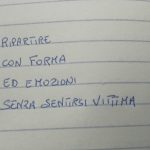 RIPARTIRE
CON FORMA
ED EMOZIONI
SENZA SENTIRSI VITTIMA